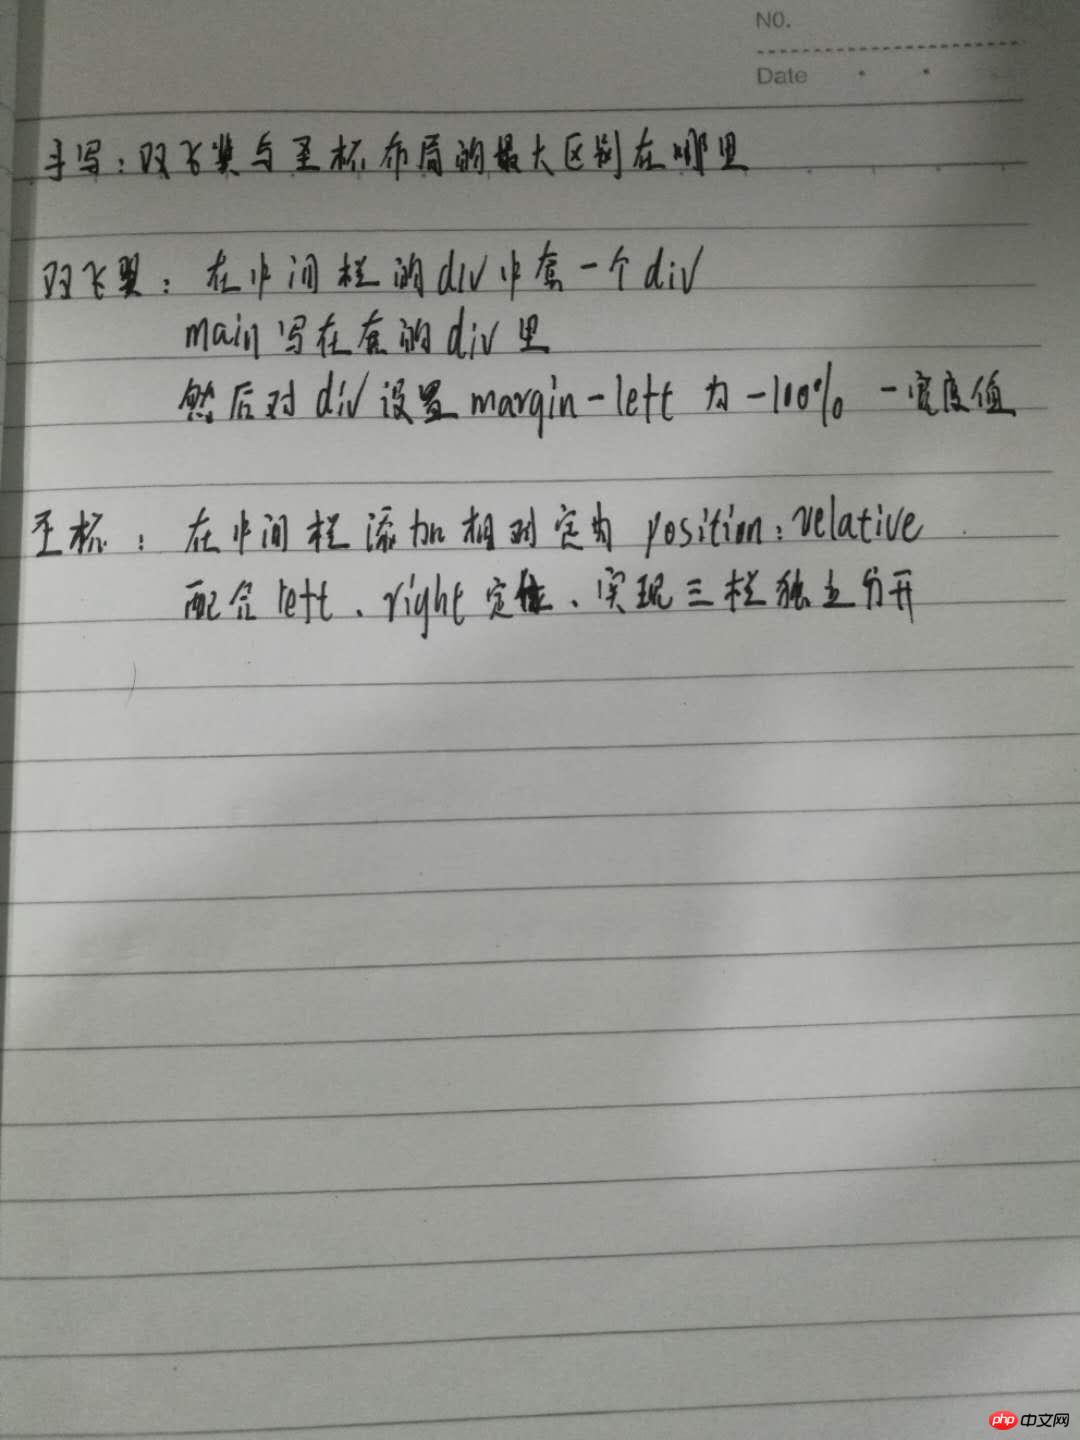 NO.
Date
手写：双飞翼与圣杯布局的最大区别在哪里
双飞翼：在中间栏的div中套一个div
main写在套的div里
然后对div设置margin-left为-100% -宽度值
圣杯：在中间栏添加相对定为position:relative
配合left、right定位、实现三栏独立分开
php中文网